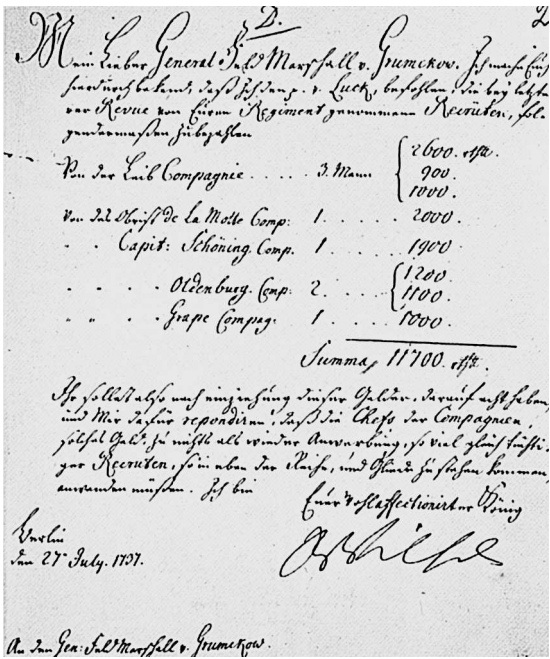 D.
Mein Lieber General-Feld Marschall v. Grumckow. Ich mache Euch
hierdurch bekand, daß Ich den p. v. Luck, befohlen, die bey letzter
rer Revue von Eurem Regiment genommene Recruten, fol-
gendermaßen zu bezahlen
Von der Leib Compagnie ..... 3. Mann 2600. rthlr.
900.
1000.
Von des Obrist de La Motte Comp: 1 ..... 2000.
" " Capit: Schöning. Comp. 1 ..... 1900.
" " " Oldenburg. Comp. 2 ..... 1200.
1100.
" " " Grape Compag. 1 ..... 1000.
Summa, 11700. rthlr.
Ihr sollet also nach einziehung dieser Gelder, darauf acht haben,
und Mir dafür repondiren, daß die Chefs der Compagnien,
solches Geld, zu nichts als wieder Anwerbung, so viel gleich tüchti-
ger Recruten, so in eben der Reihe, und Gliede zu stehen kommen,
anwenden müßen. Ich bin
Euer Wohlaffectionirter König
Berlin
den 27t July. 1737.
An den Gen: Feld Marschall v. Grumckow.